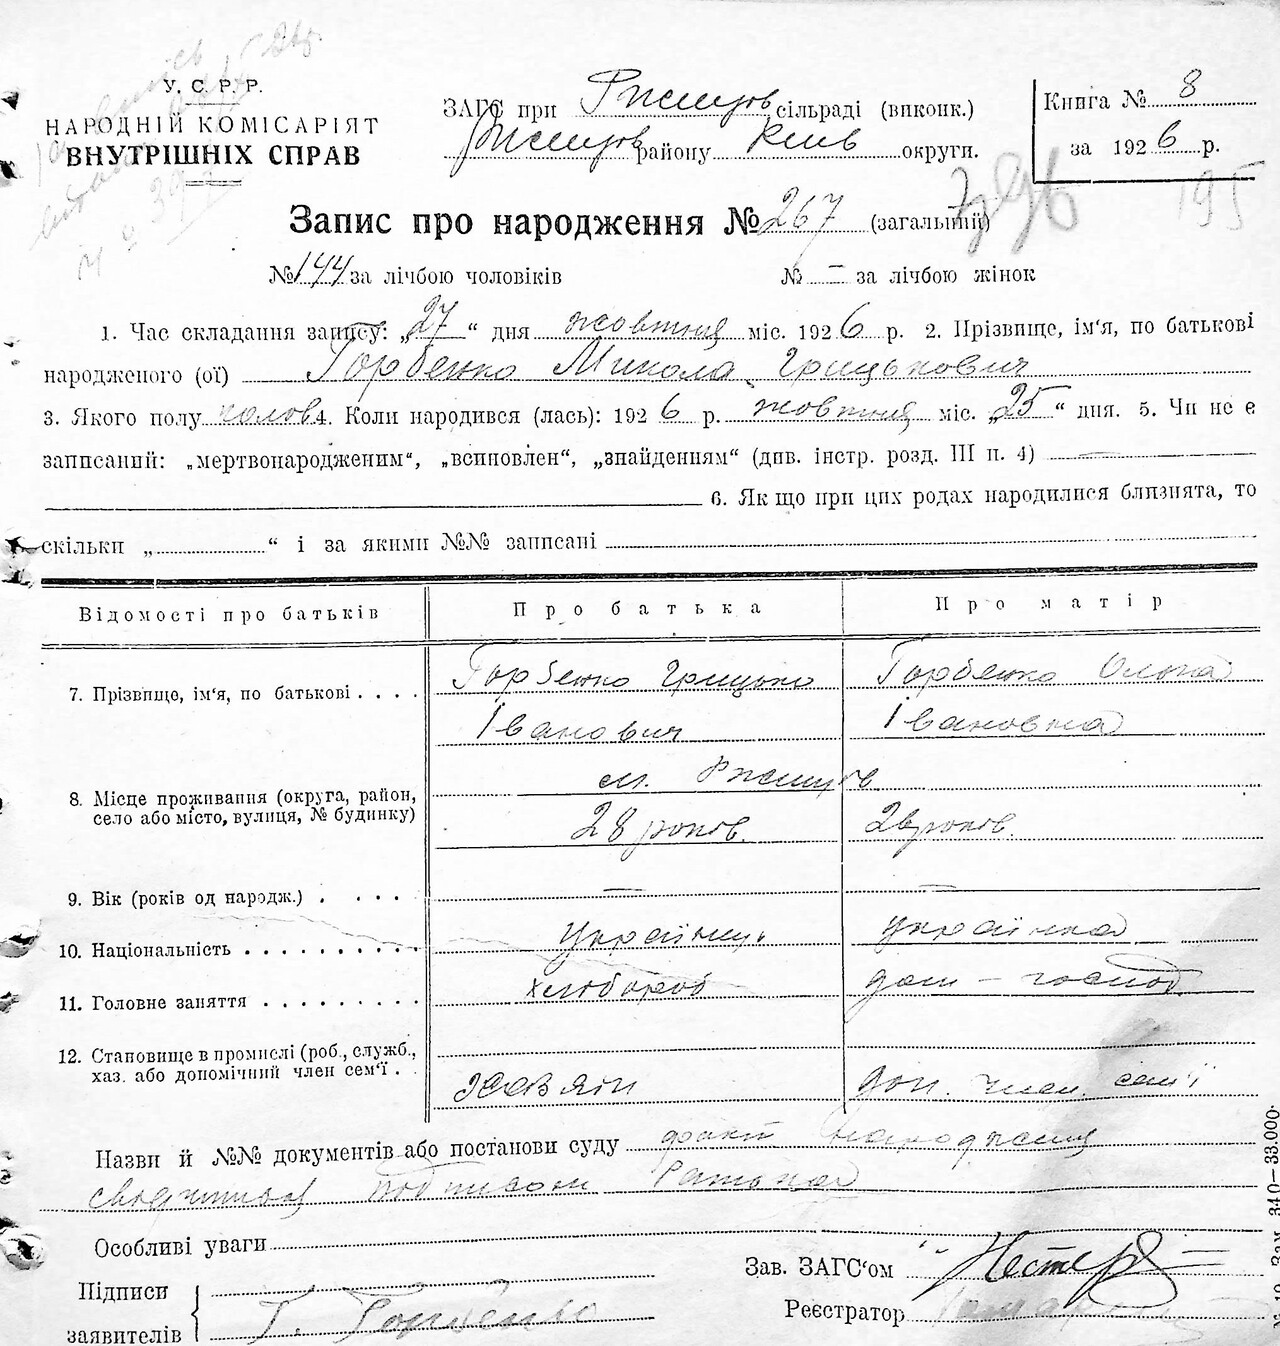 У. С. Р. Р.
НАРОДНІЙ КОМІСАРІЯТ
ВНУТРІШНІХ СПРАВ
ЗАГС при Ржищів сільраді (виконк.)
Ржищів району Київ округи.
Книга № 8
за 1926 р.
195
Запис про народження № 267 (загальний)
№ 144 за лічбою чоловіків № — за лічбою жінок
1. Час складання запису: „27“ дня жовтня міс. 1926 р. 2. Прізвище, ім'я, по батькові
народженого (ої) Горбенко Микола Грицькович
3. Якого полу чолов 4. Коли народився (лась): 1926 р. жовтня міс. „25“ дня. 5. Чи не є
записаний: „мертвонародженим“, „всиновлен“, „знайденням“ (див. інстр. розд. III п. 4) —
6. Як що при цих родах народилися близнята, то
скільки „ “ і за якими №№ записані
Відомості про батьків Про батька Про матір
7. Прізвище, ім'я, по батькові . . . . Горбенко Грицько Горбенко Ольга
Іванович Івановна
8. Місце проживання (округа, район, село або місто, вулиця, № будинку) м. Ржищів
28 років 26 років.
9. Вік (років од народж.) . . . . — —
10. Національність . . . . . . . . . Українець українка
11. Головне заняття . . . . . . . . хлібороб дом — господ
12. Становище в промислі (роб., служб.,
хаз. або допомічний член сем'ї . . хазяїн доп. член. сем'ї
Назви й №№ документів або постанови суду факт народження
свідчиться підписом батька
Особливі уваги
Зав. ЗАГС'ом
Підписи
заявителів Г. Горбенко
Реєстратор